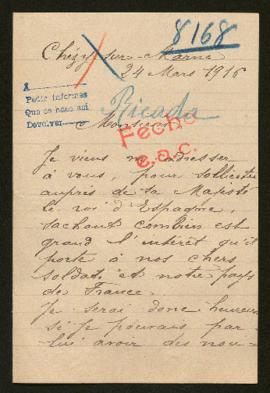 8168
Chézy sur Marne
24 Mars 1916
A
Pedir informes
Que se haga así
Devolver
Ricada
Monsieur
Fecho
e.a.c.
Je viens m'adresser
à vous, pour solliciter
auprès de sa Majesté
le roi d'Espagne,
sachant combien est
grand l'intérêt qu'il
porte à nos chers
soldats et notre pays
de France.
Je serai donc heureuse
si je pouvais par
lui avoir des nou-